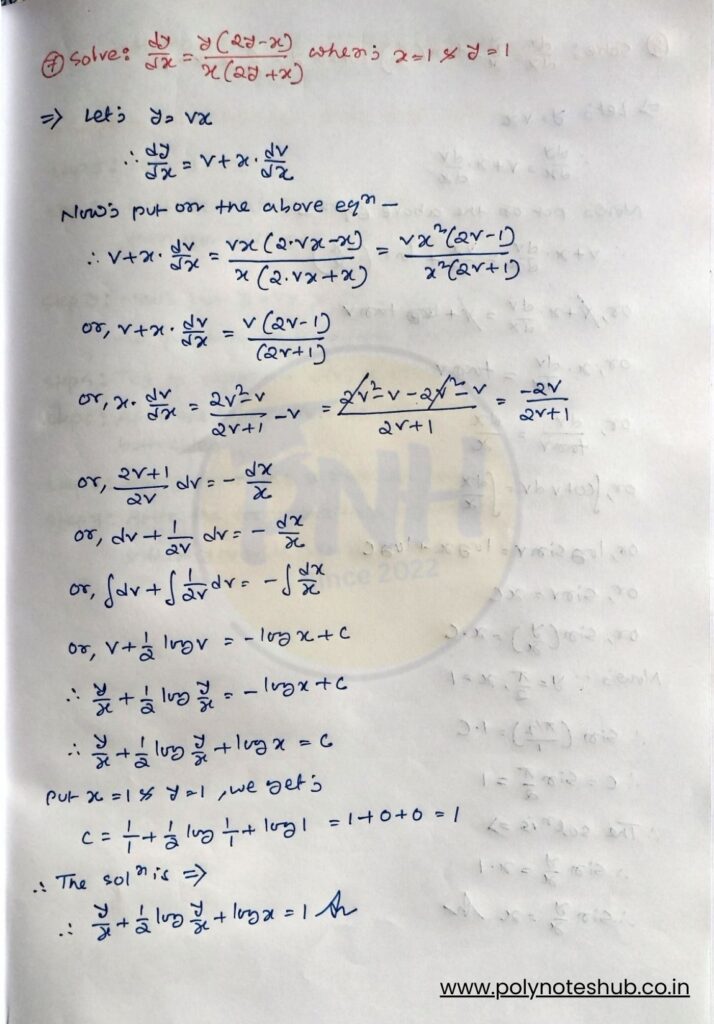 ⑦ Solve: dy/dx = y(2y-x)/x(2y+x) when; x=1 & y=1
⇒ Let; y = vx
∴ dy/dx = v+x·dv/dx
Now; put on the above eqⁿ -
∴ v+x·dv/dx = vx(2·vx-x)/x(2·vx+x) = vx²(2v-1)/x²(2v+1)
or, v+x·dv/dx = v(2v-1)/(2v+1)
or, x·dv/dx = 2v²-v/2v+1 -v = 2v²-v-2v²-v/2v+1 = -2v/2v+1
or, 2v+1/2v dv = - dx/x
or, dv + 1/2v dv = - dx/x
or, ∫dv + ∫1/2v dv = -∫dx/x
or, v+1/2 logv = -logx+c
∴ y/x + 1/2 log y/x = -logx+c
∴ y/x + 1/2 log y/x + logx = c
Put x=1 & y=1, we get;
c = 1/1 + 1/2 log 1/1 + log1 = 1+0+0 = 1
∴ The solⁿ is ⇒
∴ y/x + 1/2 log y/x + logx = 1 An
PNH
Since 2022
www.polynoteshub.co.in